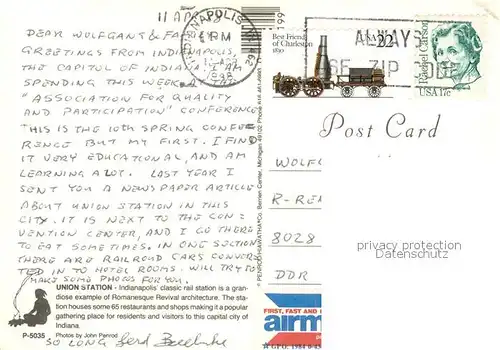 11 APR
INDIANAPOLIS
PM
11 APR
1988
DEAR WOLFGANG &
GREETINGS FROM INDIANAPOLIS,
THE CAPITOL OF INDIANA. I AM
SPENDING THIS WEEK AT THE
"ASSOCIATION FOR QUALITY
AND PARTICIPATION" CONFERENCE
THIS IS THE 10TH SPRING CONFE-
RENCE BUT MY FIRST. I FIND
IT VERY EDUCATIONAL, AND AM
LEARNING A LOT. LAST YEAR I
SENT YOU A NEWSPAPER ARTICLE
ABOUT UNION STATION IN THIS
CITY. IT IS NEXT TO THE CON-
VENTION CENTER, AND I GO THERE
TO EAT SOMETIMES. IN ONE SECTION
THERE ARE RAILROAD CARS CONVER-
TED IN TO HOTEL ROOMS. WILL TRY TO
MAKE SOME PHOTOS FOR YOU.
UNION STATION - Indianapolis' classic rail station is a gran-
diose example of Romanesque Revival architecture. The sta-
tion houses some 65 restaurants and shops making it a popular
gathering place for residents and visitors to this capital city of
Indiana.
P-5035
Photos by John Penrod
SO LONG Gerd
PENROD/HIAWATHA Co. Berrien Center, Michigan 49102
Best Friend
of Charleston
1830
USA 22
ALWAYS
USE ZIP CODE
Rachel Carson
USA 17c
Post Card
WOLFG
R-REN
8028
DDR
privacy protection
Datenschutz
FIRST, FAST AND
airm
GPO: 1984 0-45